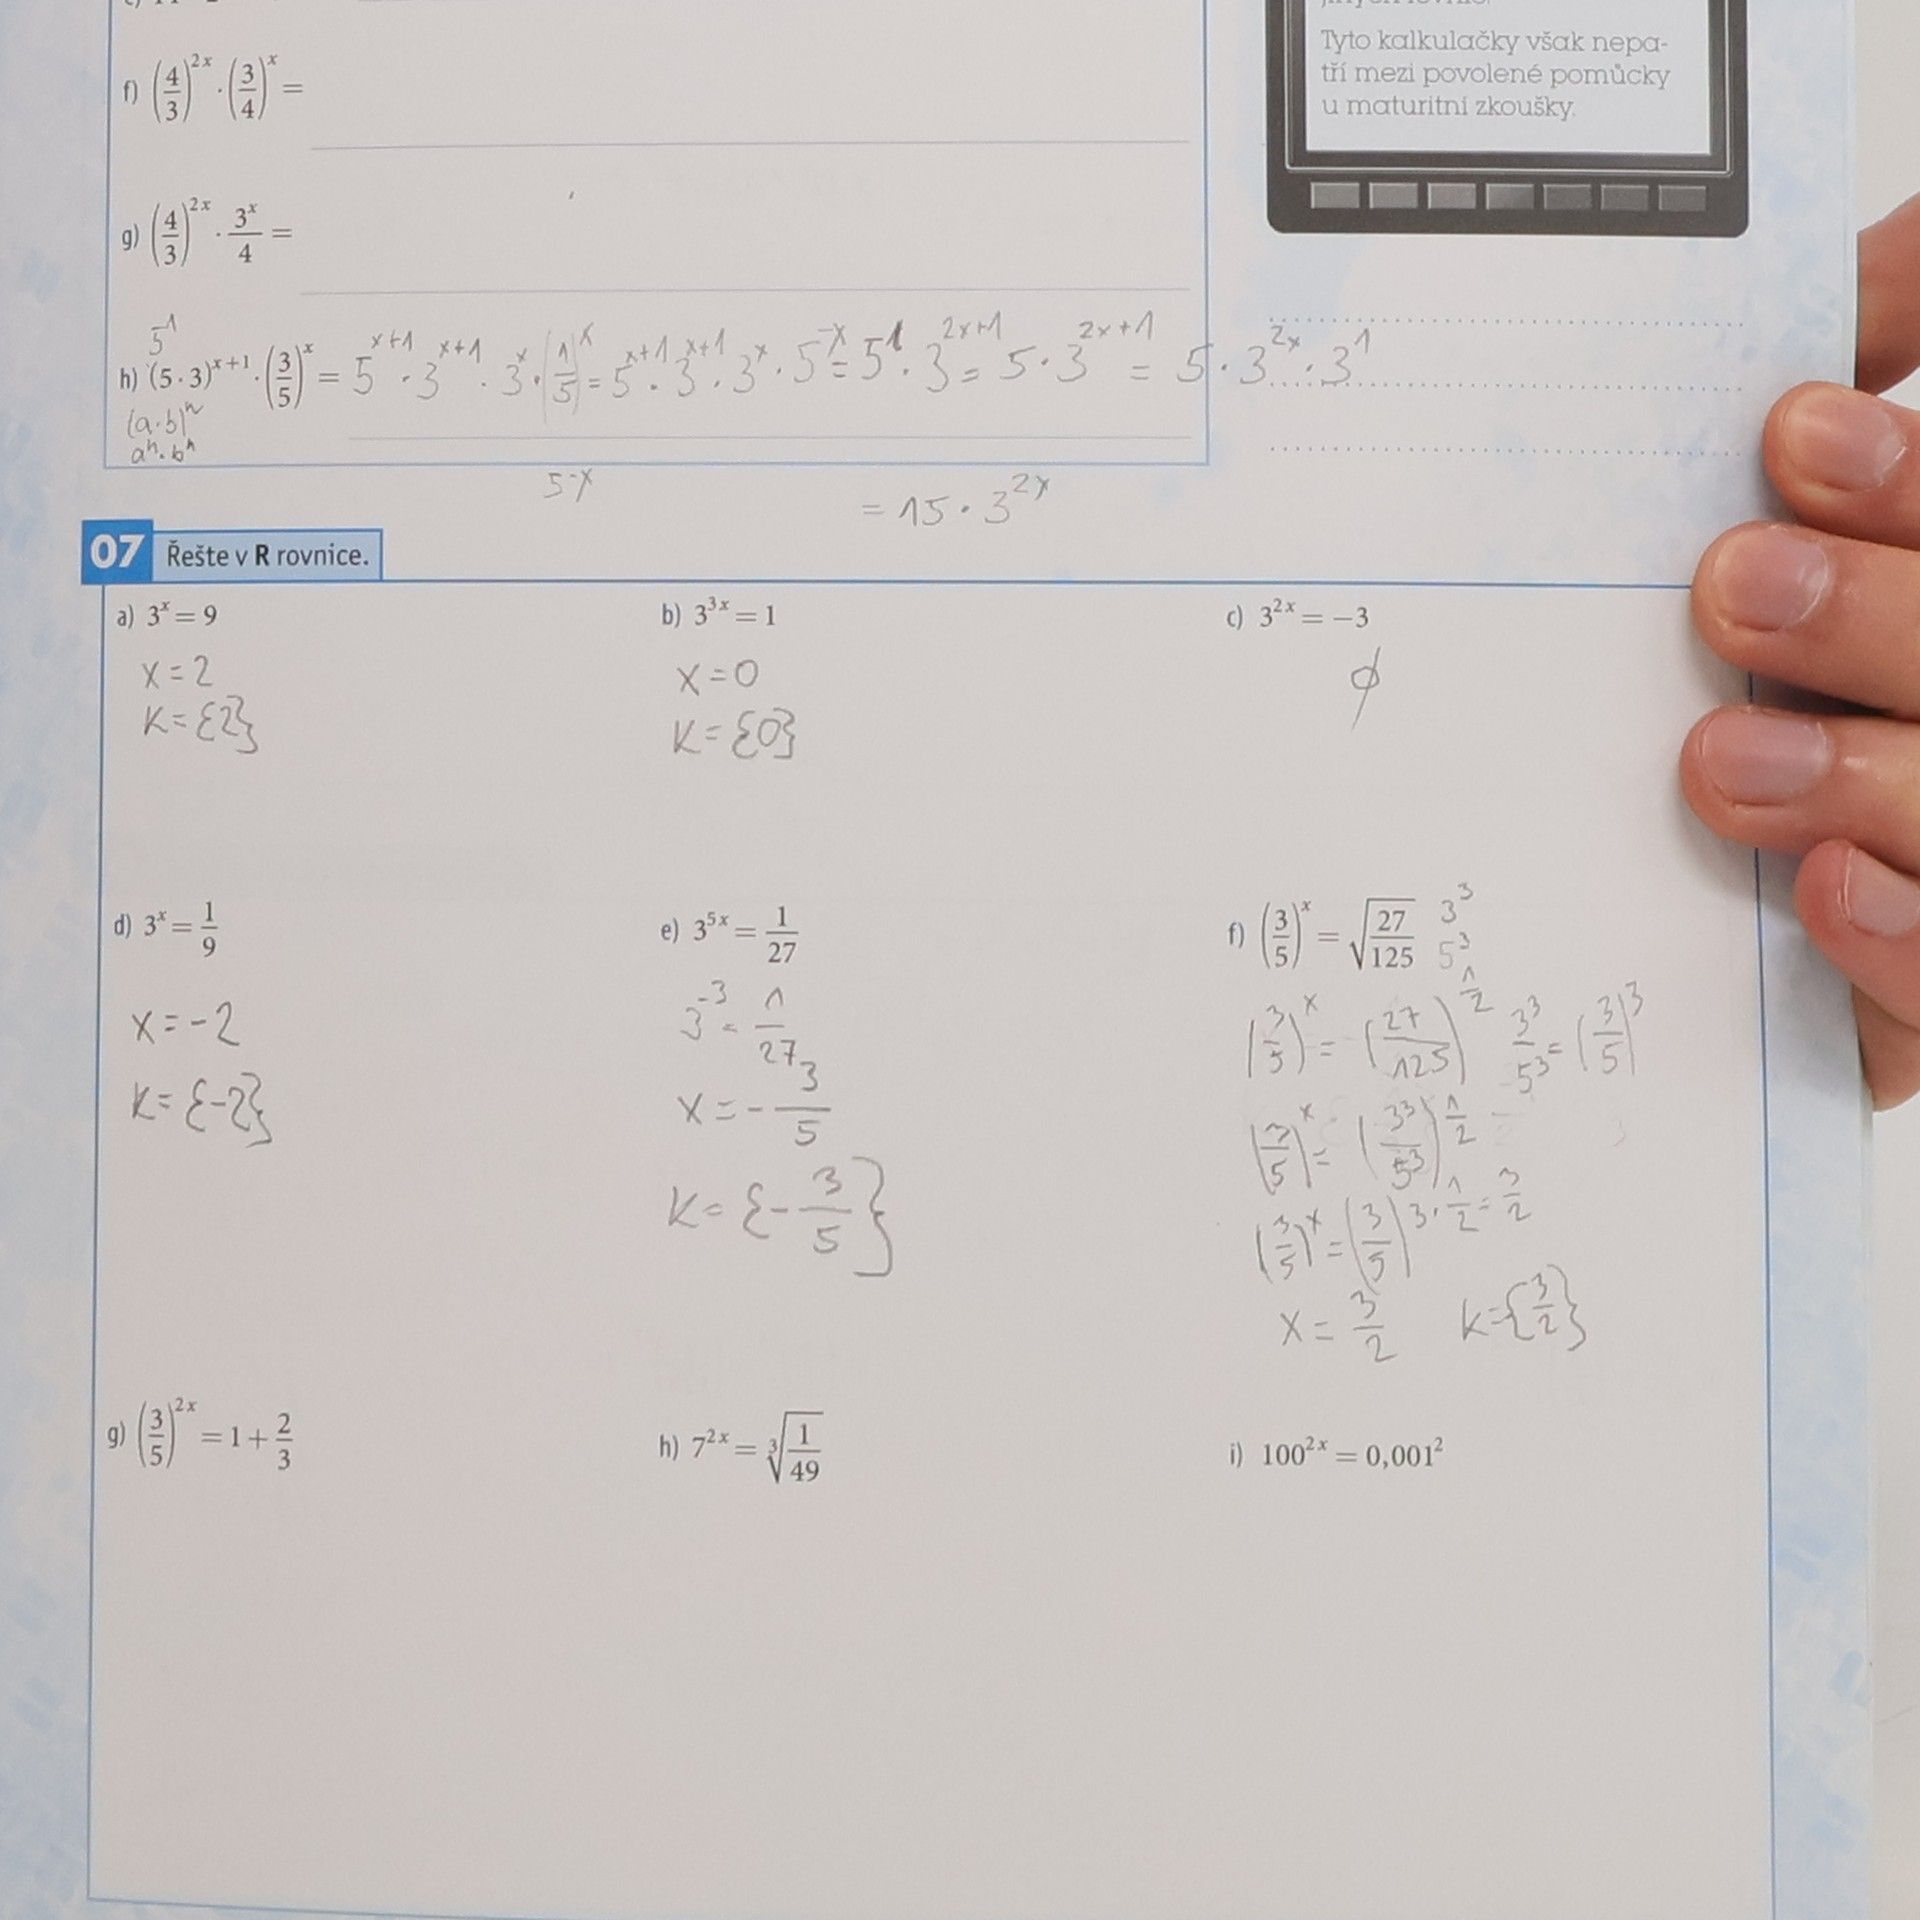 Tyto kalkulačky však nepa-
tří mezi povolené pomůcky
u maturitní zkoušky.
f) (4/3)^2x · (3/4)^x =
g) (4/3)^2x · 3^x/4 =
5^1
h) (5 · 3)^x+1 · (3/5)^x = 5^x+1 · 3^x+1 · 3^x · (1/5)^x = 5^x+1 · 3^x+1 · 3^x · 5^-x = 5^1 · 3^2x+1 = 5 · 3^2x+1 = 5 · 3^2x · 3^1
(a·b)^n
a^n · b^n
5^-x
= 15 · 3^2x
07 Řešte v R rovnice.
a) 3^x = 9
x = 2
K = {2}
b) 3^3x = 1
x = 0
K = {0}
c) 3^2x = −3
∅
d) 3^x = 1/9
x = -2
K = {-2}
e) 3^5x = 1/27
3^-3 = 1/27
x = - 3/5
K = {- 3/5}
f) (3/5)^x = √(27/125) 3^3 5^3
(3/5)^x = (27/125)^1/2 3^3/5^3 = (3/5)^3
(3/5)^x = (3^3/5^3)^1/2
(3/5)^x = (3/5)^3·1/2 = 3/2
x = 3/2 K = {3/2}
g) (3/5)^2x = 1 + 2/3
h) 7^2x = ∛(1/49)
i) 100^2x = 0,001^2